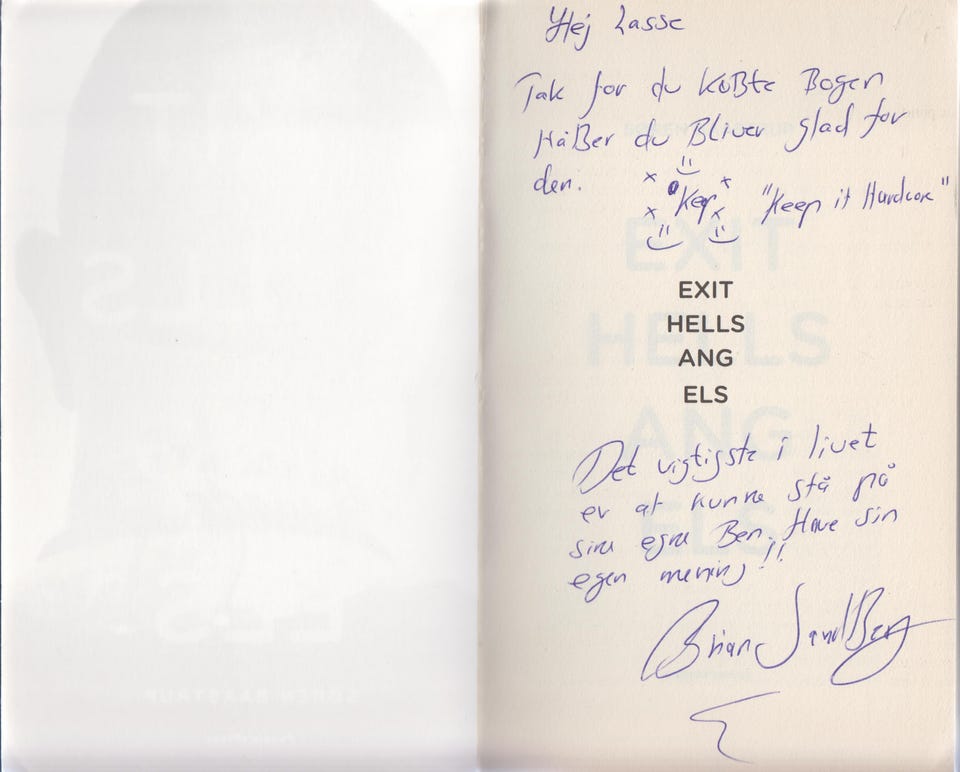 Hej Lasse
Tak for du købte Bogen
Håber du Bliver glad for
den.
"Keep it Hardcore"
EXIT
HELLS
ANG
ELS
Det vigtigste i livet
er at kunne stå på
sine egne Ben. Have sin
egen mening!!
Brian SandBerg
EXIT
HELLS
ANG
ELS
SØREN BAASTRUP